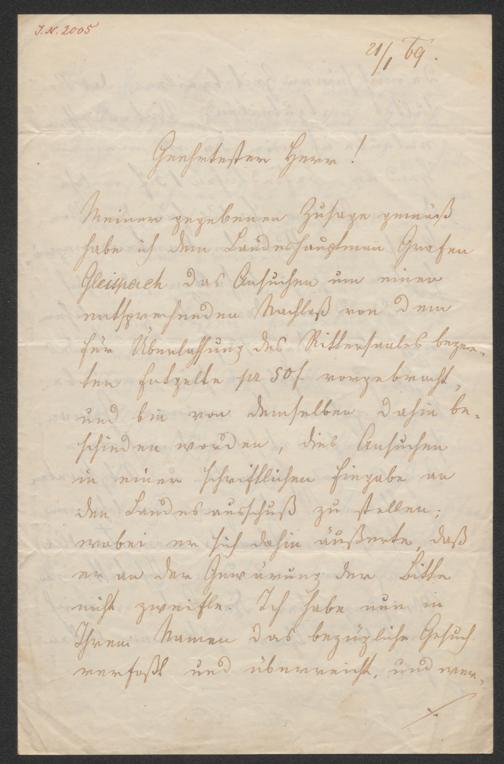 I. N. 2005
21/1 69.
Geehrtester Herr!
Meiner gegebenen Zusage gemäß
habe ich dem Landeshauptman Grafen
Gleispach das Ansuchen um einen
entsprechenden Nachlaß von dem
für Überlassung des Rittersaales bezeu-
ten Entgelte pr 50 f. vorgebracht,
und bin von demselben dahin be-
schieden worden, dies Ansuchen
in einer schriftlichen Eingabe an
den Landesausschuß zu stellen;
wobei er sich dahin äußerte, daß
er an der Gewärung der Bitte
nicht zweifle. Ich habe nun in
Ihrem Namen das bezügliche Gesuch
verfaßt und überreicht, und wer-